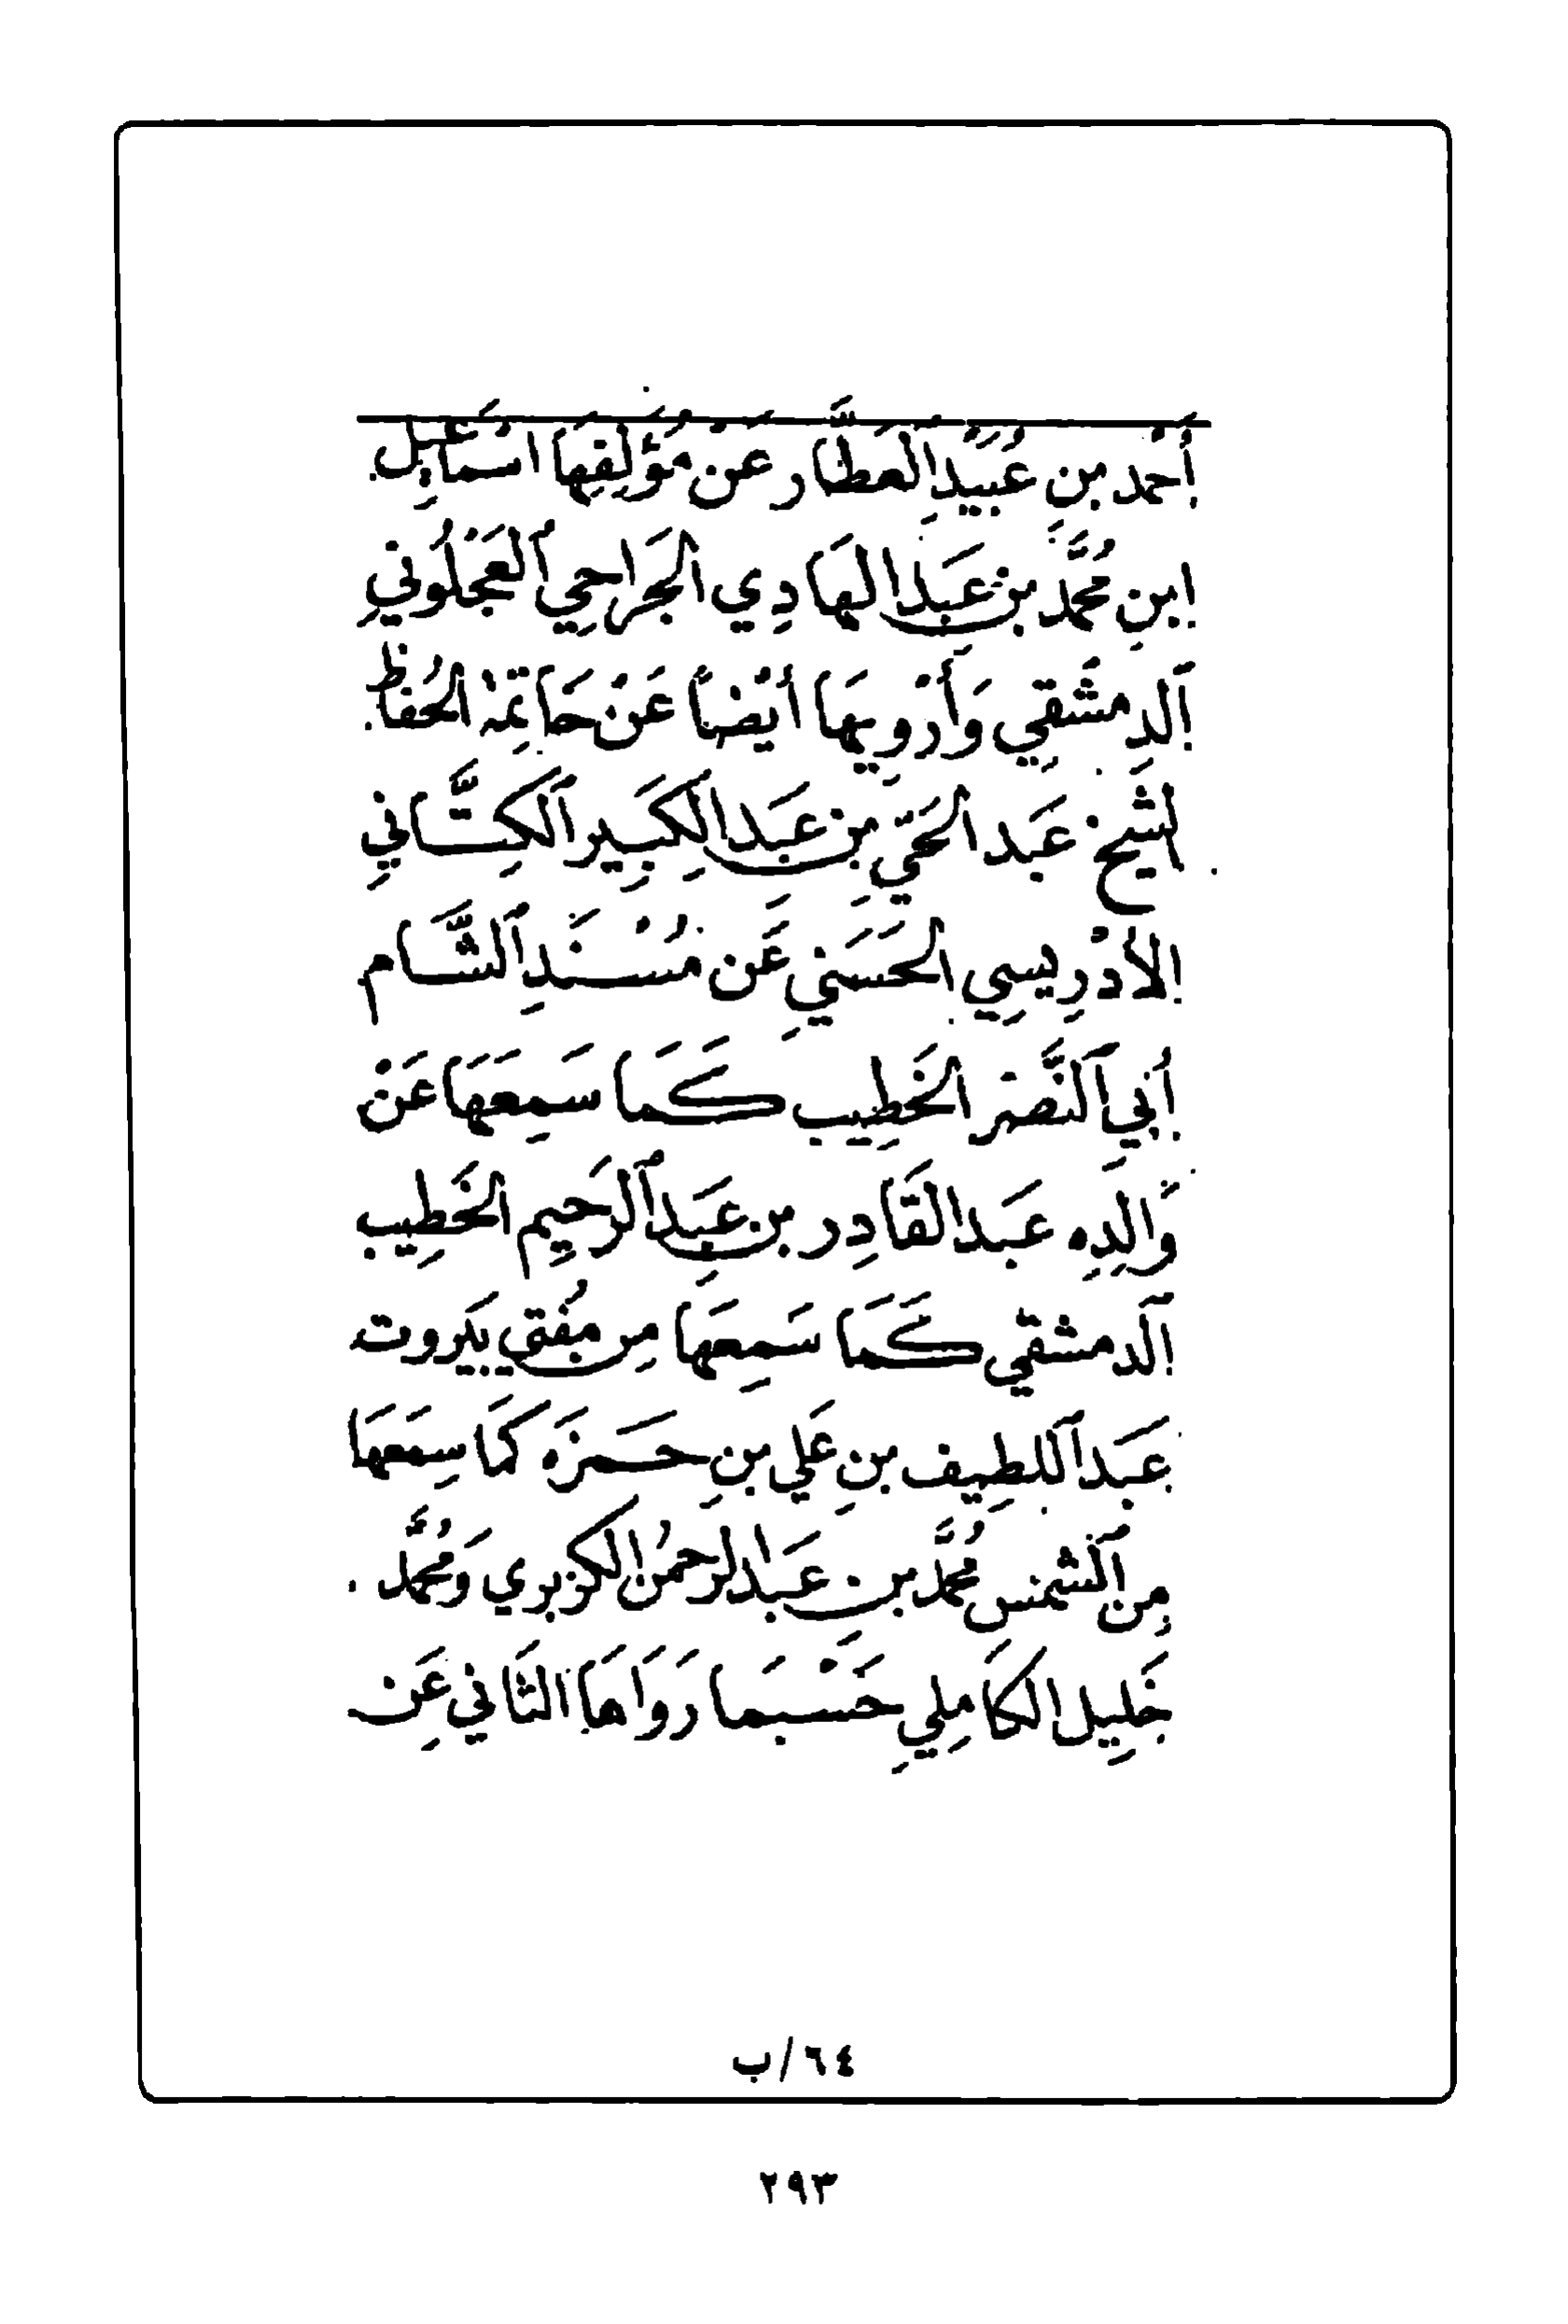 أَحْمَد بن عُبَيْدِ العَطَّار عَنْ مُؤَلِّفِهَا اسْمَاعِيل
ابن مُحَمَّد بن عَبد الهَادِي الجَرَاحِي العَجْلُونِي
الدمَشْقِي وَأَرْوِيهَا أَيْضاً عَنْ خَاتِمَة الحُفاظ
لشَّيخ عَبد الحَيّ بن عَبد الكَبِير الكِتَّانِي
الأدْرِيسِي الحَسَنِي عَن مُسْنَدِ الشَّام
أبِي النَّصْر الخَطِيب كَمَا سَمِعَهَا عَنْ
وَالِدِه عَبد القَادِر بن عَبد الرَحِيم الخَطِيب
الدمشقِي كَمَا سَمِعَهَا مِن مُفتي بَيروت
عَبد اللطِيف بنِ عَلي بنِ حَمزَه كَمَا سَمِعَهَا
مِن الشمْس مُحَمَّد بن عَبد الرحمٰن الكزبري وَمُحَمَّد
خَلِيل الكَامِلي حَسْبَما رَوَاهَا الثَانِي عَن
٦٤/ب
٢٩٣